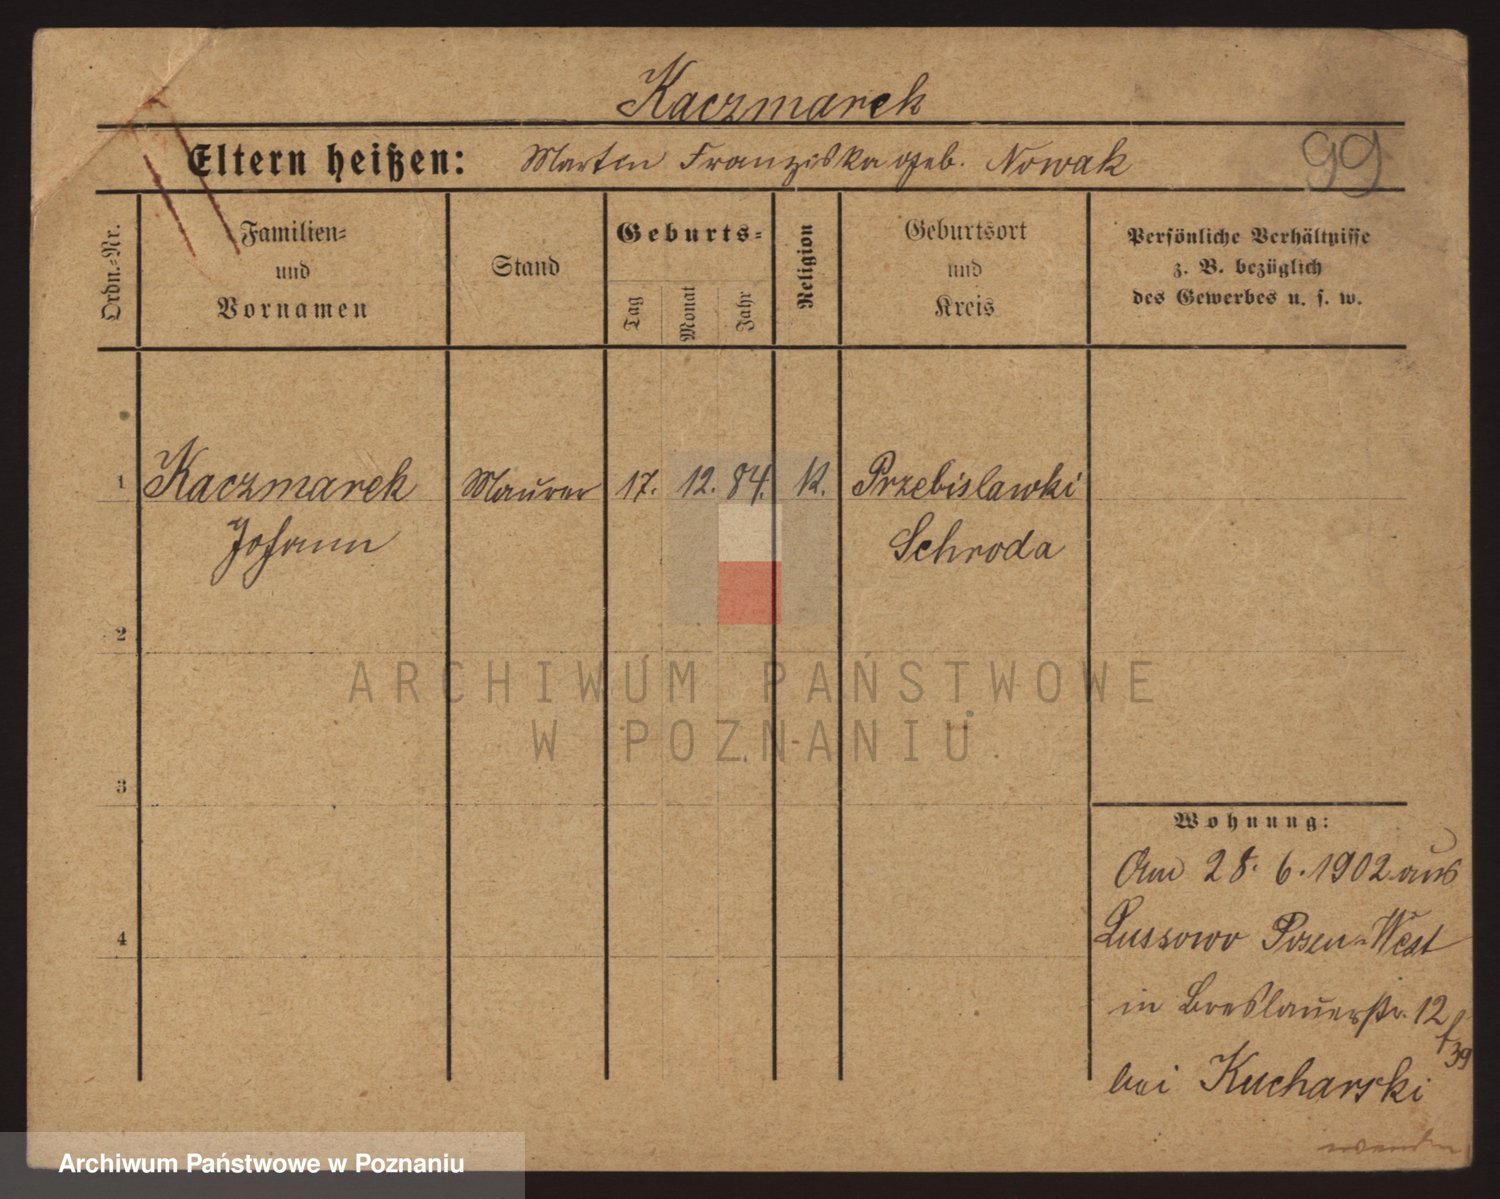 Kaczmarek
Eltern heißen: Martin Franziska geb. Nowak 99
Ordn.-Nr.
Familien-
und
Vornamen
Stand
Geburts-
Tag Monat Jahr
Religion
Geburtsort
und
Kreis
Persönliche Verhältnisse
z. B. bezüglich
des Gewerbes u. s. w.
1 Kaczmarek Maurer 17. 12. 84. K. Przebislawki
Johann Schroda
2
3
4
Wohnung:
Am 28. 6. 1902 aus
Lussowo Posen-West
in Breslauerstr. 12
f 39
bei Kucharski
wenden
ARCHIWUM PAŃSTWOWE
W POZNANIU
Archiwum Państwowe w Poznaniu